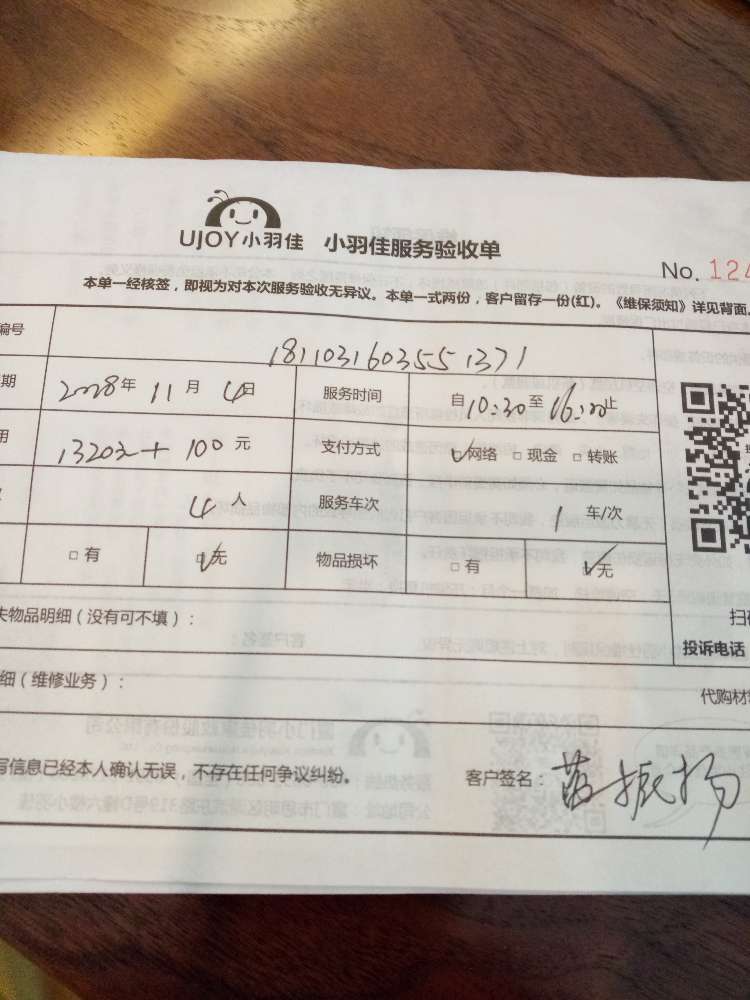 UJOY小羽佳 小羽佳服务验收单
No. 124
本单一经核签，即视为对本次服务验收无异议。本单一式两份，客户留存一份(红)。《维保须知》详见背面。
编号 18110316035551371
期 2018年 11月 4日 服务时间 自10:30至16:30止
用 1320元+100元 支付方式 网络 □现金 □转账
4人 服务车次 1 车/次
□有 无 物品损坏 □有 无
失物品明细（没有可不填）：
扫
投诉电话
细（维修业务）：
代购材
写信息已经本人确认无误，不存在任何争议纠纷。 客户签名：振扬